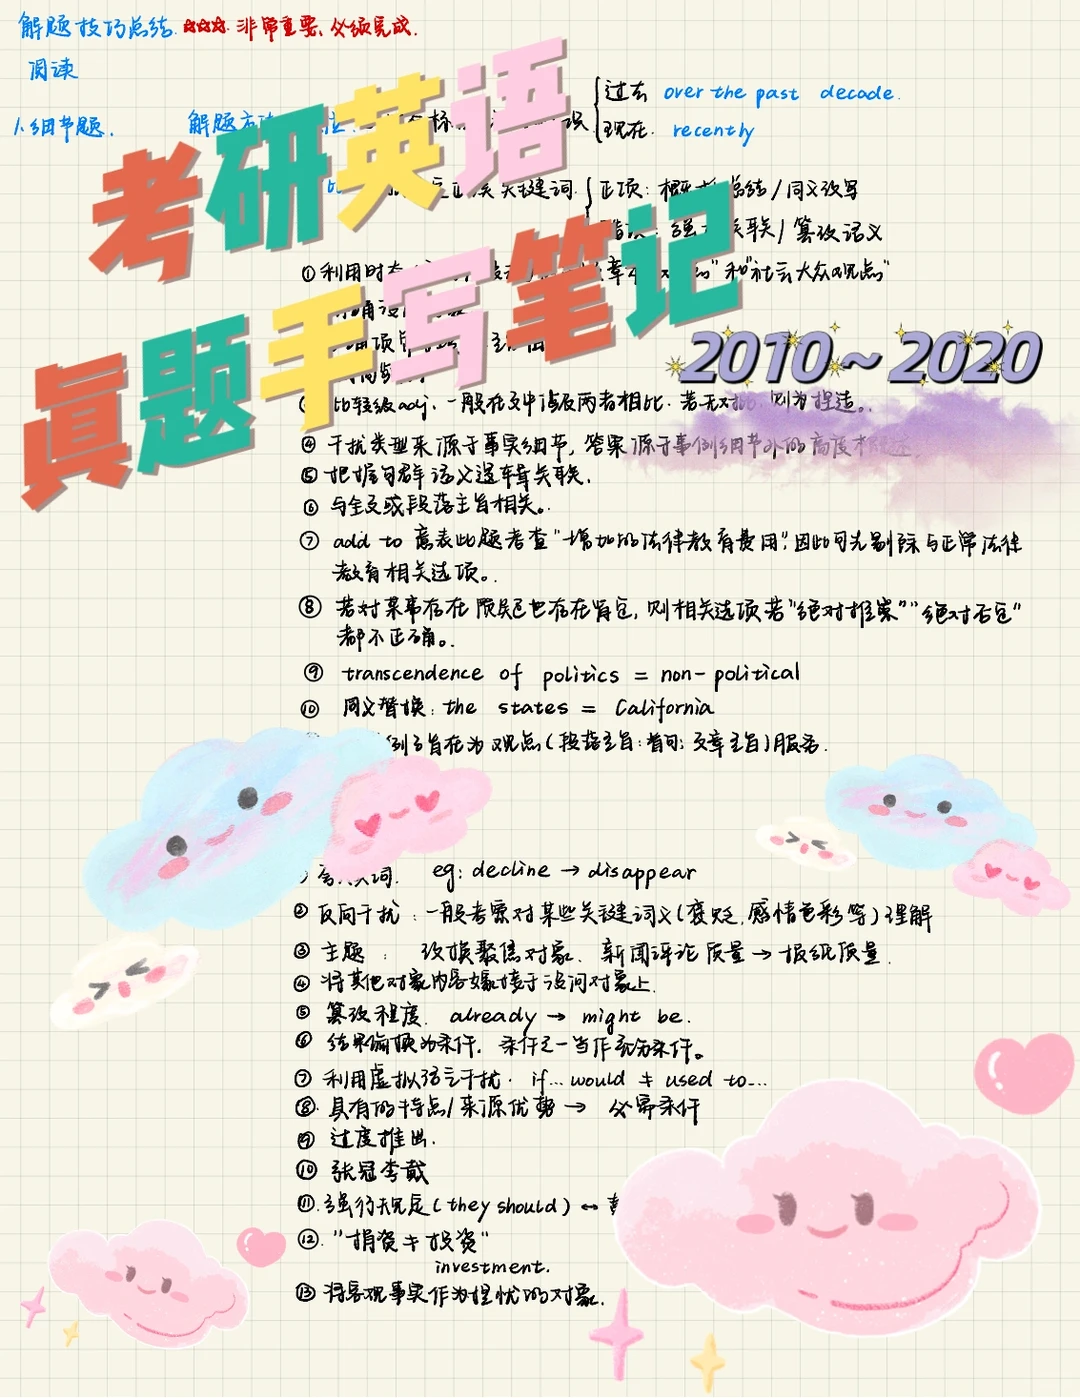 解题技巧总结 ☆☆☆ 非常重要、必须完成.
阅读
考研英语
真题手写笔记
2010~2020
1.细节题.
解题方
标
识
过去 over the past decade.
现在. recently
关键词
正项: 概括总结/同义改写
强 关联/篡改语义
①利用时态
章
和"社会大众观点"
比较级adj. 一般在文中涉及两者相比. 若无对比. 则为捏造。
④ 干扰类型来源于事实细节, 答案源于事例细节外的高度概述.
⑤ 把握句群语义逻辑关联.
⑥ 与全文或段落主旨相关。
⑦ add to 意表此题考查"增加的法律教育费用". 因此可先剔除与正常法律
教育相关选项。
⑧ 若对某事存在质疑也存在肯定, 则相关选项若"绝对推崇""绝对否定"
都不正确。
⑨ transcendence of politics = non-political
⑩ 同义替换: the states = California
例子旨在为观点(段落主旨:首句; 文章主旨)服务.
词. eg: decline → disappear
② 反向干扰: 一般考察对某些关键词义(褒贬,感情色彩等)理解
③ 主题: 改换聚焦对象. 新闻评论质量 → 报纸质量.
④ 将其他对象内容嫁接于设问对象上.
⑤ 篡改程度. already → might be.
⑥ 结果偷换为条件. 条件之一当作充分条件。
⑦ 利用虚拟语气干扰. if... would ≠ used to...
⑧. 具有的特点/来源优势 → 必需条件
⑨ 过度推出.
⑩ 张冠李戴
⑪. 强行规定(they should) ↔
⑫. "捐资≠投资"
investment.
⑬ 将客观事实作为担忧的对象.